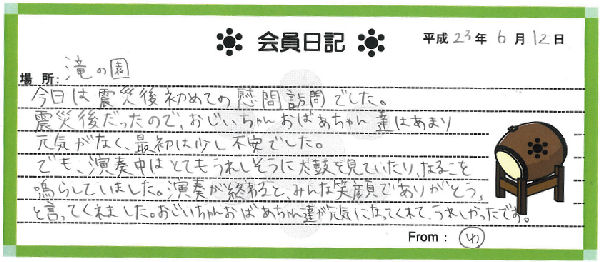 会員日記
平成23年6月12日
場所:滝の園
今日は震災後初めての慰問訪問でした。
震災後だったので、おじいちゃんおばあちゃん達はあまり
元気がなく、最初は少し不安でした。
でも、演奏中はとてもうれしそうに太鼓を見ていたり、なるこを
鳴らしていました。演奏が終わると、みんな笑顔でありがとう。
と言ってくれました。おじいちゃんおばあちゃん達が元気になってくれて、うれしかったです。
From: